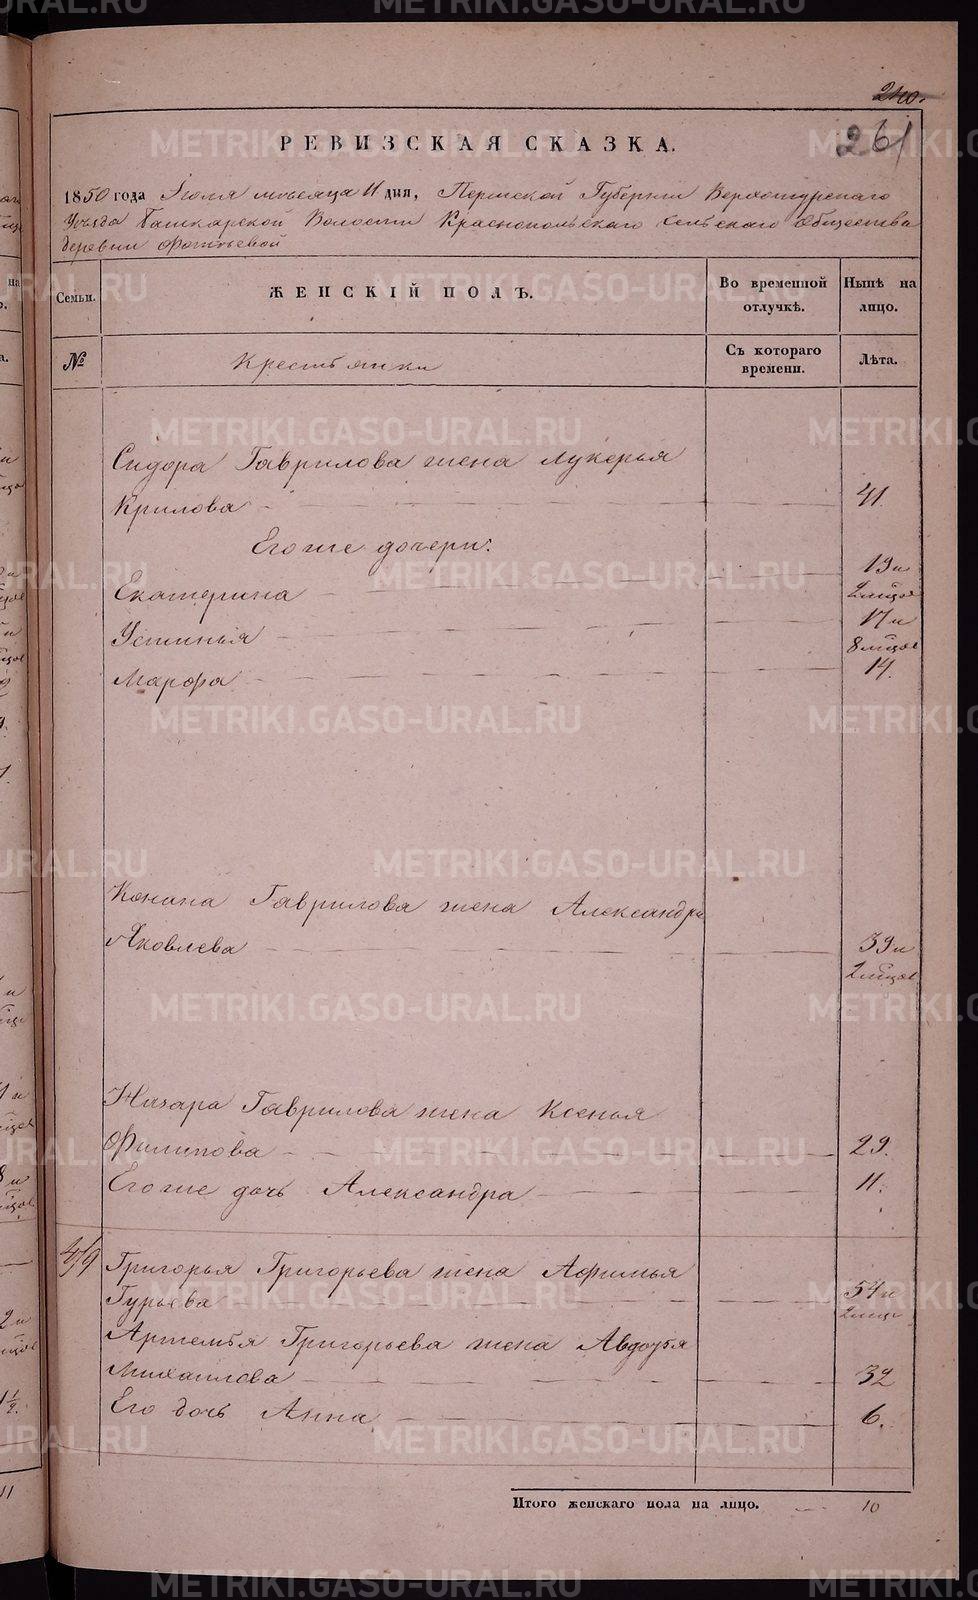 240.
261
РЕВИЗСКАЯ СКАЗКА.
1850 года Іюля месяца 11 дня, Пермской Губерніи Верхотурскаго
Уѣзда Башкарской Волости Краснопольскаго Сельскаго Общества
деревни Фотѣевой
Семьи.
ЖЕНСКІЙ ПОЛЪ.
Во временной отлучкѣ.
Нынѣ на лицо.
№
Крестьянки
Съ котораго времени.
Лѣта.
Сидора Гаврилова жена Лукерья
Крилова 41.
Его же дочери:
Екатерина 19 и 2 мѣцов
Устинья 17 и 8 мѣцов
Марфа 14.
Конона Гаврилова жена Александра
Яковлева 39 и 2 мѣцов
Назара Гаврилова жена Ксенья
Филипова 29.
Его же дочь Александра 11.
Григорья Григорьева жена Афимья
Гурьева 54 и 2 мѣцов
Артемья Григорьева жена Авдотья
Михаилова 32
Его дочь Анна 6.
Итого женскаго пола на лицо. 10
METRIKI.GASO-URAL.RU